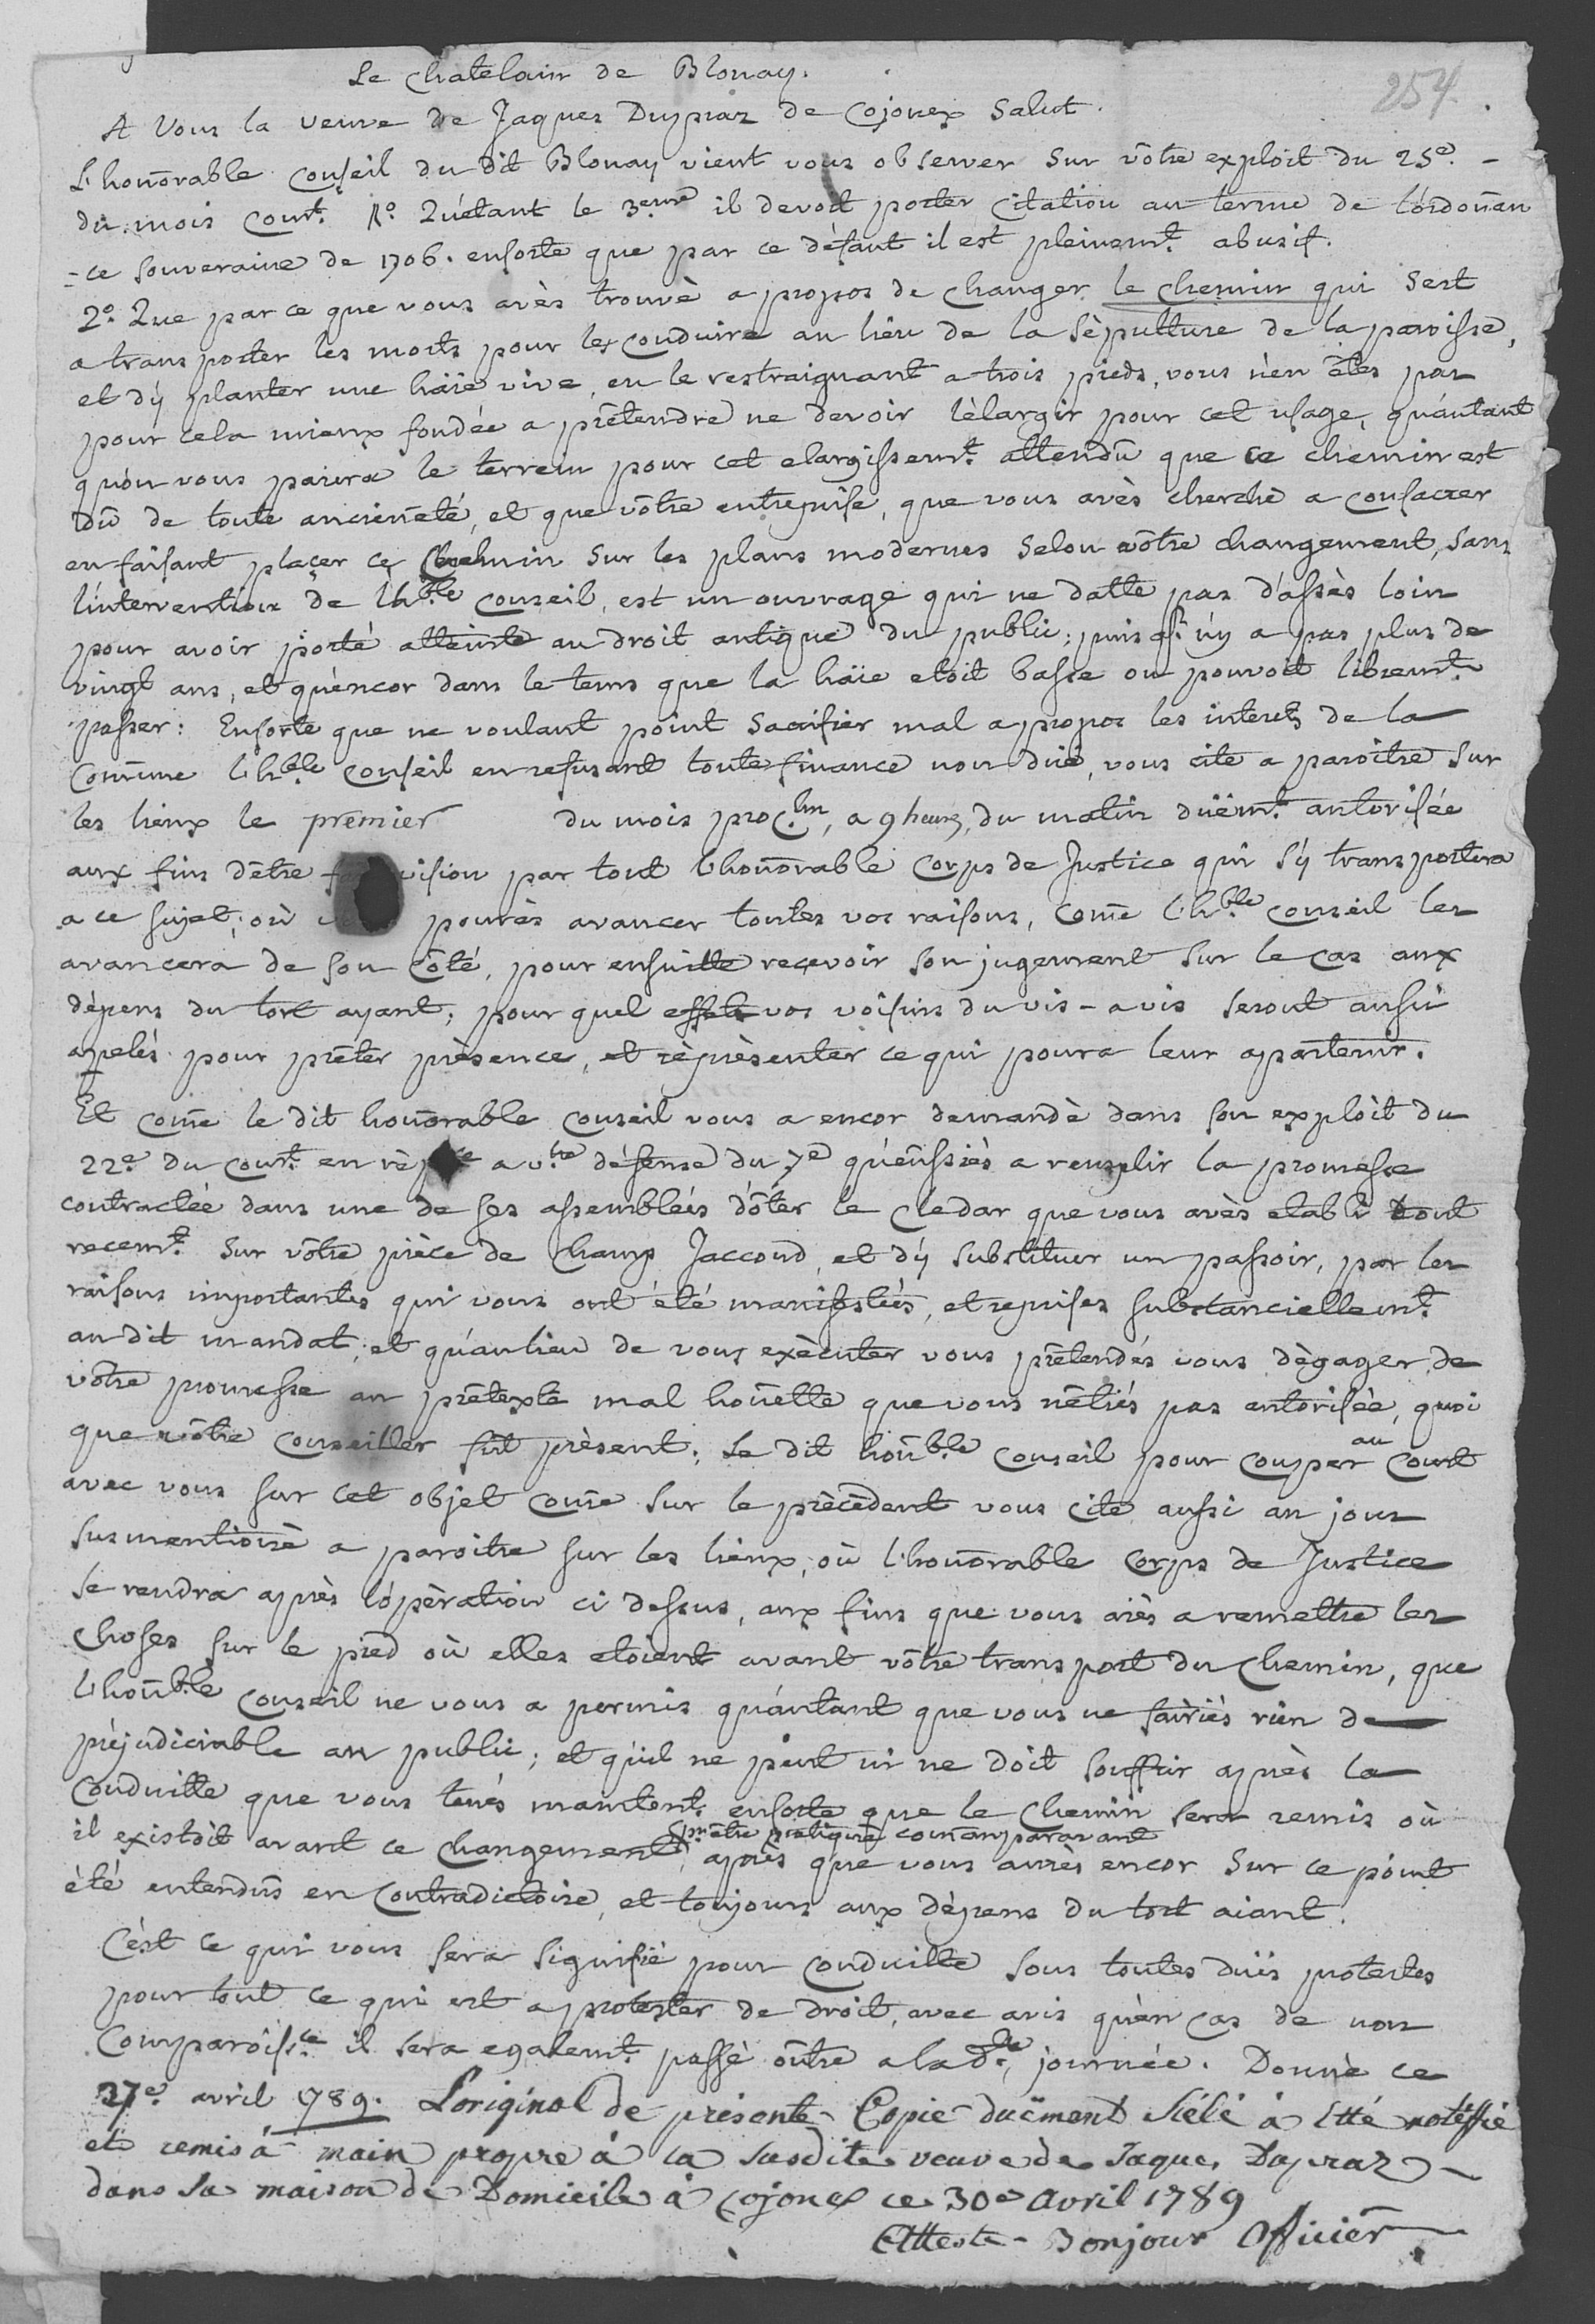 254.
Le Chatelain de Blonay.
A Vous la veuve de Jaques Dupraz de Cojonex Salut.
L'honorable Conseil du dit Blonay vient vous observer sur vôtre exploit du 25e. -
du mois Court. 1o. Qu'étant le 3eme il devoit porter Citation au terme de l'ordonan
=ce Souveraine de 1706. ensorte que par ce dèfaut il est pleinemt. abusif.
2o. Que par ce que vous avès trouvè a propos de changer le chemin qui sert
a transporter les morts pour les conduire au lieu de la sèpulture de la paroisse,
et d'ÿ planter une häie vive, en le restraignant a trois pieds, vous n'en êtes pas
pour cela mieux fondée a prétendre ne devoir l'èlargir pour cet usage, qu'autant
qu'on vous païera le terrein pour cet elargissemt. attendû que ce chemin est
dû de toute ancieneté, et que vôtre entreprise, que vous avès cherchè a consacrer
en faisant placer ce Chemin sur les plans modernes selon vôtre changement, sans
l'intervention de l'hble conseil, est un ouvrage qui ne datte pas d'assès loin
pour avoir porté atteinte au droit antique du public; puisqu'il n'y a pas plus de
vingt ans, et qu'encor dans le tems que la häie etoit basse on pouvoit libremt.
passer: Ensorte que ne voulant point sacrifier mal a propos les interets de la
Comune l'hble Conseil en refusant toute finance non düe, vous cite a paroître sur
les lieux le premier du mois proc.hn, a 9 heures, du matin düemt. autorisée
aux fins d'être vision par tout l'honorable Corps de Justice qui s'ÿ transportera
a ce sujet; où pourès avancer toutes vos raisons, come l'hble conseil les
avancera de son Côté, pour ensuitte recevoir son jugement sur le cas aux
dèpens du tort ayant; pour quel effet vos voisins du vis-avis seront aussi
apelés pour prêter prèsence, et rèprèsenter ce qui poura leur apartenir.
Et come le dit honorable Conseil vous a encor demandè dans son exploit du
22e. du Court. en a vtre. défense du 7e qu'eüssiès a remplir la promesse
contractée dans une de ses assemblées d'ôter le Cledar que vous avès etabli tout
recemt. sur vôtre pièce de Champ Jaccoud, et d'ÿ substituer un passoir, par les
raisons importantes qui vous ont été manifestées, et reprises substanciellemt.
au dit mandat; et qu'au lieu de vous exècuter vous prétendés vous dègager de
vôtre promesse au prétexte mal honette que vous n'étiés pas autorisée, quoi
que vôtre Conseiller fût prèsent; Le dit honble. Conseil pour couper au court
avec vous sur cet objet come sur le précédent vous cite aussi au jour
susmentionè a paroitre sur les lieux, où l'honorable Corps de Justice
se rendra après l'opèration ci dessus, aux fins que vous aiès a remettre les
choses sur le pied où elles etoient avant vôtre transport du Chemin, que
l'honble. Conseil ne vous a permis qu'autant que vous ne fairiés rien de
préjudiciable au public; et qu'il ne peut ni ne doit souffrir après la
Conduitte que vous tenés maintent. ensorte que le Chemin sera remis où
il existoit avant ce Changement pr. être pratiqué come auparavant après que vous aurès encor sur ce point
èté entendûs en Contradictoire, et toujours aux dèpens du tort aiant.
C'est ce qui vous sera signifiè pour Conduitte sous toutes düës protestes
pour tout ce qui est a protester de droit, avec avis qu'en cas de non
Comparoisce. il sera egalemt. passè oûtre a la dte. journée. Donnè ce
27e. avril 1789. L'original de présente Copie duëment Selé à Eté notiffié
et remis à main propre à la susdite veuve de Jaque. Dupraz
dans sa maison de Domicile à Cojonex ce 30e avril 1789
Atteste - Bonjour Officier